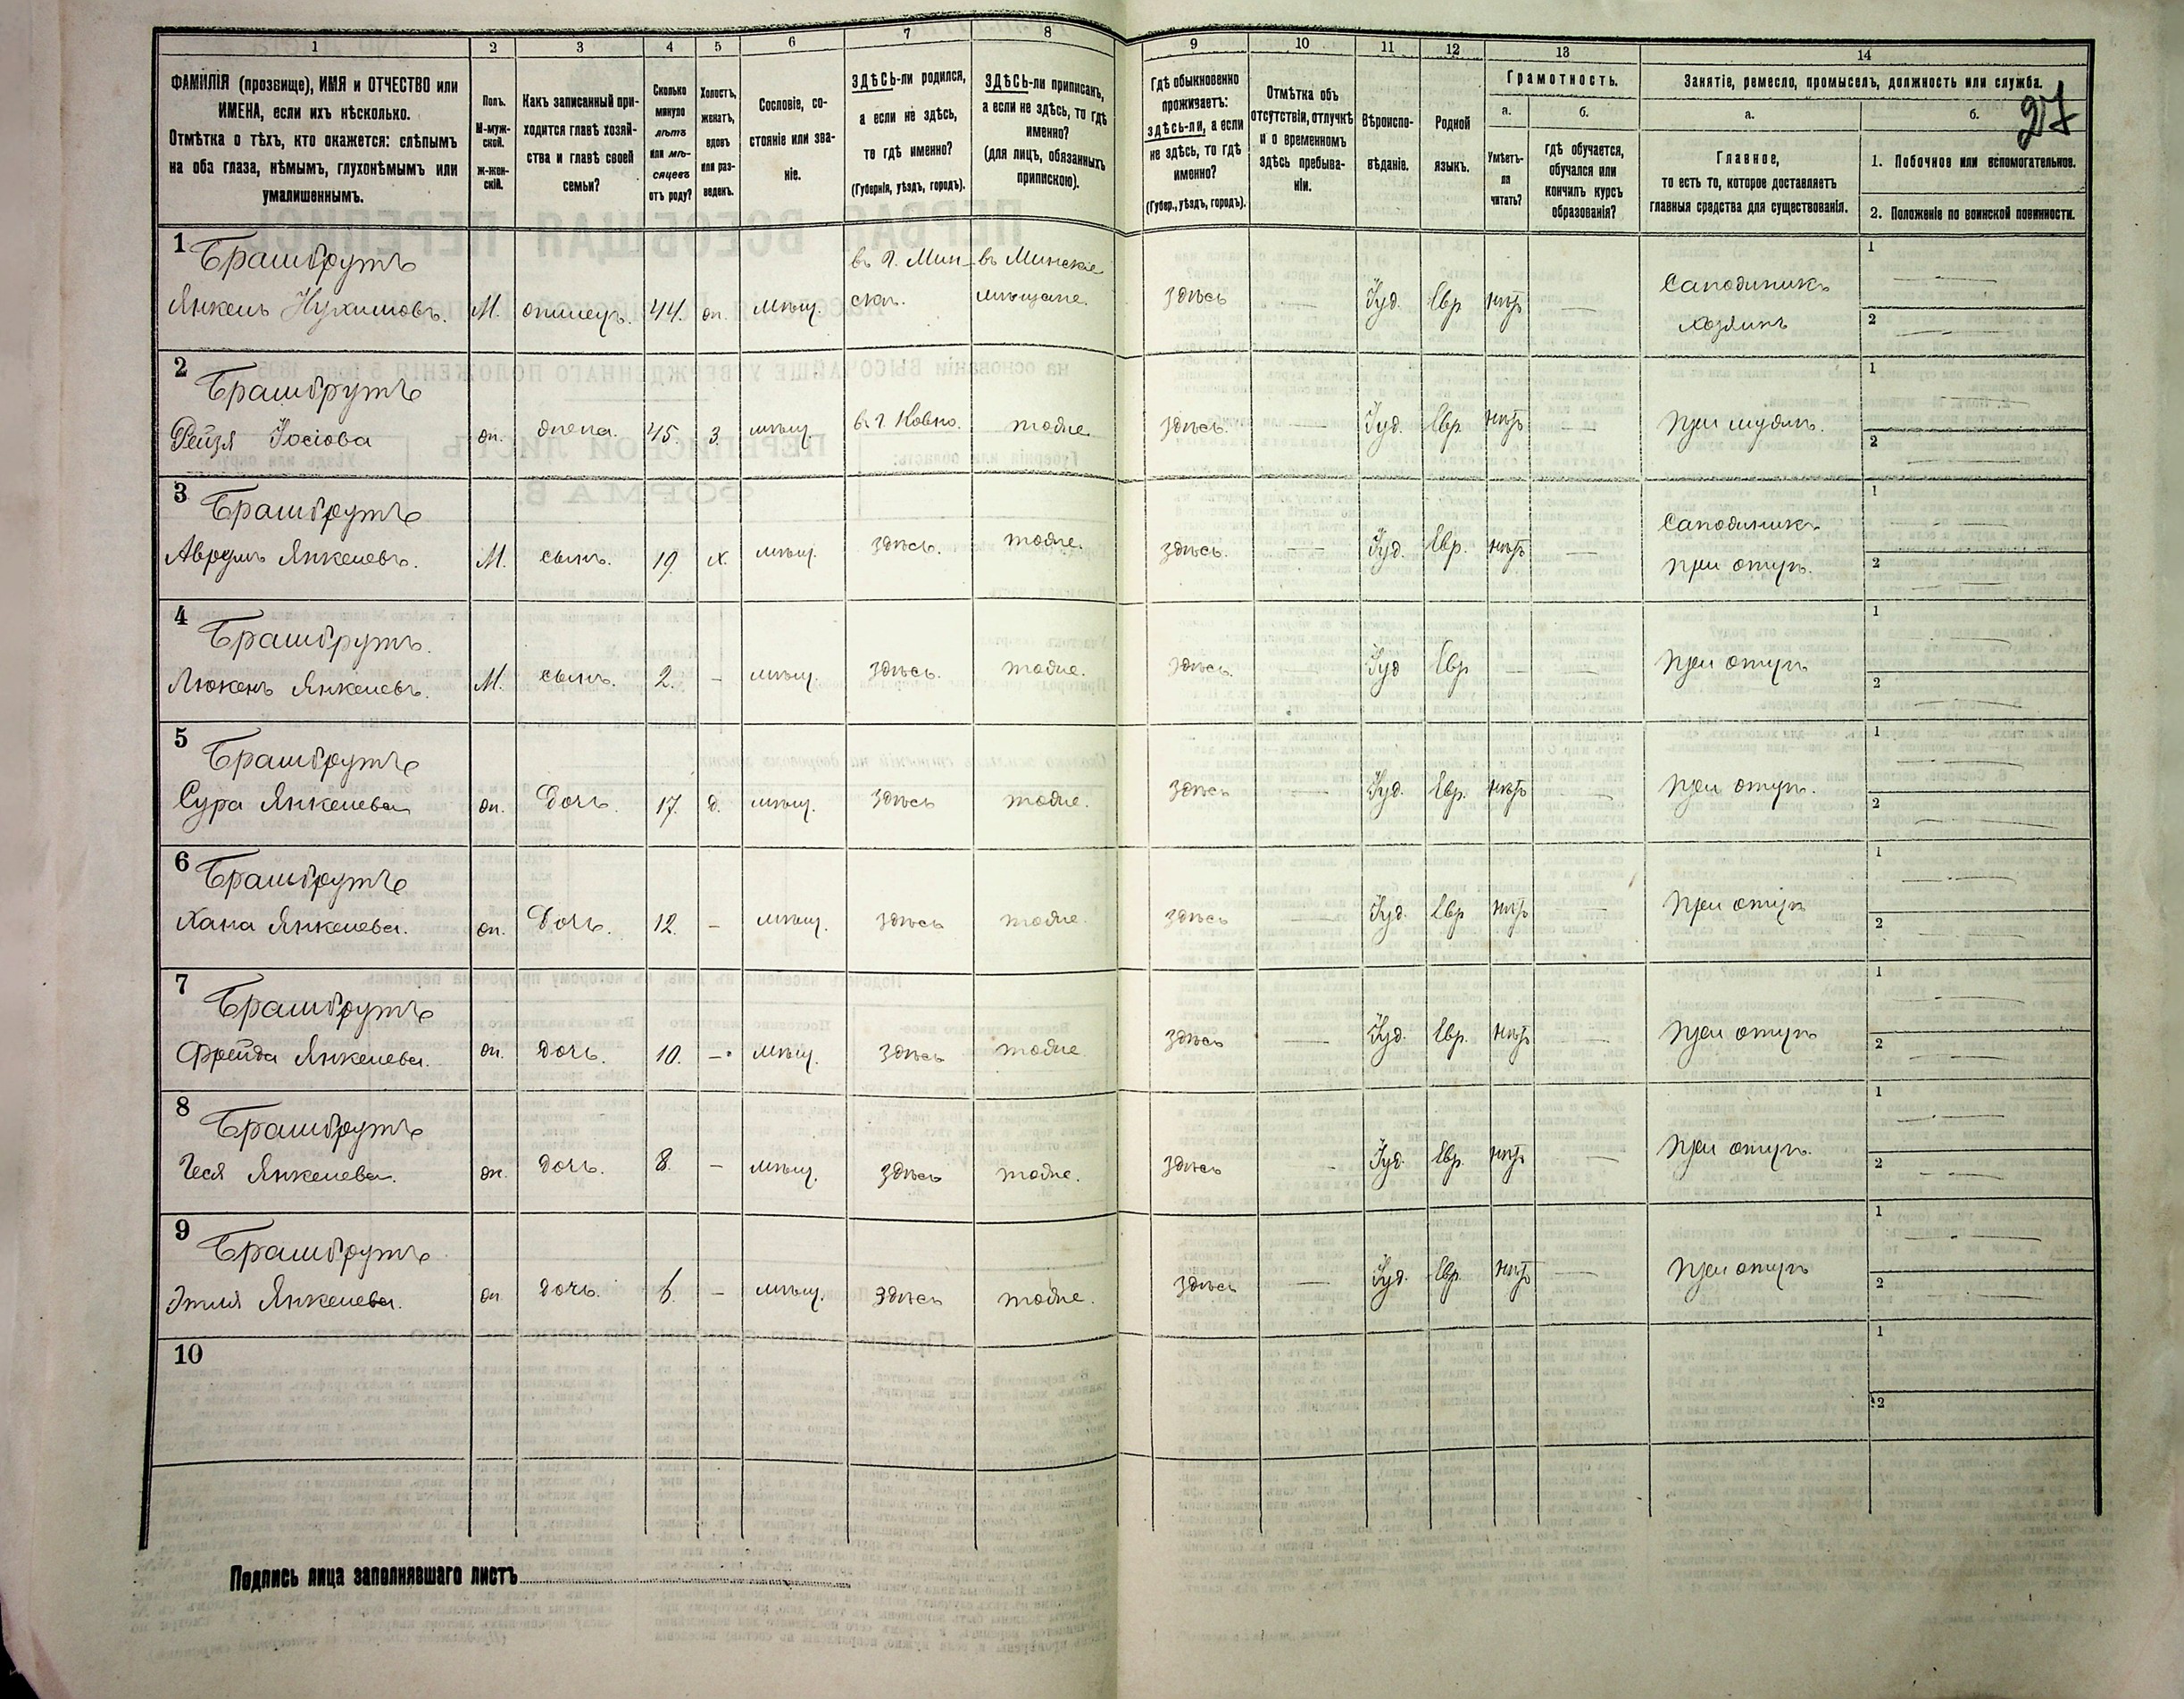 1 2 3 4 5 6 7 8 9 10 11 12 13 14
27
ФАМИЛІЯ (прозвище), ИМЯ и ОТЧЕСТВО или
ИМЕНА, если ихъ нѣсколько.
Отмѣтка о тѣхъ, кто окажется: слѣпымъ
на оба глаза, нѣмымъ, глухонѣмымъ или
умалишеннымъ.
Полъ.
М-муж-
ской.
ж-жен-
скій.
Какъ записанный при-
ходится главѣ хозяй-
ства и главѣ своей
семьи?
Сколько
минуло
лѣтъ
или мѣ-
сяцевъ
отъ роду?
Холостъ,
женатъ,
вдовъ
или раз-
веденъ.
Сословіе, со-
стояніе или зва-
ніе.
ЗДѢСЬ-ли родился,
а если не здѣсь,
то гдѣ именно?
(Губернія, уѣздъ, городъ).
ЗДѢСЬ-ли приписанъ,
а если не здѣсь, то гдѣ
именно?
(для лицъ, обязанныхъ
припискою).
Гдѣ обыкновенно
проживаетъ:
здѣсь-ли, а если
не здѣсь, то гдѣ
именно?
(Губер., уѣздъ, городъ).
Отмѣтка объ
отсутствіи, отлучкѣ
и о временномъ
здѣсь пребыва-
ніи.
Вѣроиспо-
вѣданіе.
Родной
языкъ.
Грамотность.
а.
Умѣетъ-
ли
читать?
б.
гдѣ обучается,
обучался или
кончилъ курсъ
образованія?
Занятіе, ремесло, промыселъ, должность или служба.
а.
Главное,
то есть то, которое доставляетъ
главныя средства для существованія.
б.
1. Побочное или вспомогательное.
2. Положеніе по воинской повинности.
1 Брашбрутъ в г. Мин- въ Минскіе Сапожникъ 1 —
Янкель Нухимовъ. М. 44. мѣщ. скѣ. мѣщане. здѣсь — Іуд. Евр нѣтъ — хозяинъ 2 —
2 Брашбрутъ 1
Рейзя Іосіова жп. жена. 45. З. мѣщ. в г. Ковно. тоже. здѣсь. — Іуд. Евр нѣтъ — При мужѣ. 2 —
3 Брашбрутъ Сапожникъ 1 —
Аврумъ Янкелевъ. М. сынъ. 19. х. мѣщ. здѣсь. тоже. здѣсь. — Іуд. Евр. нѣтъ — при отцѣ. 2 —
4 Брашбрутъ. 1 —
Янкелевъ. М. сынъ. 2. – мѣщ. здѣсь. тоже. здѣсь. — Іуд Евр — — При отцѣ 2 —
5 Брашбрутъ 1 —
Сура Янкелева дочь. 17. д. мѣщ. здѣсь тоже. здѣсь — Іуд. Евр. нѣтъ — При отцѣ. 2 —
6 Брашбрутъ 1 —
Хана Янкелева. дочь. 12. – мѣщ. здѣсь тоже. здѣсь — Іуд. Евр нѣтъ — При отцѣ 2 —
7 Брашбрутъ 1 —
Фрейда Янкелева. дочь. 10. – мѣщ. здѣсь тоже. здѣсь — Іуд. Евр. нѣтъ — При отцѣ 2 —
8 Брашбрутъ 1 —
Янкелева. дочь. 8. – мѣщ. здѣсь тоже. здѣсь – Іуд. Евр. нѣтъ — При отцѣ. 2 —
9 Брашбрутъ 1 —
Этля Янкелева. дочь. 6. – мѣщ. здѣсь тоже. здѣсь — Іуд. Евр. нѣтъ — При отцѣ 2 —
10 1
2
Подпись лица заполнявшаго листъ